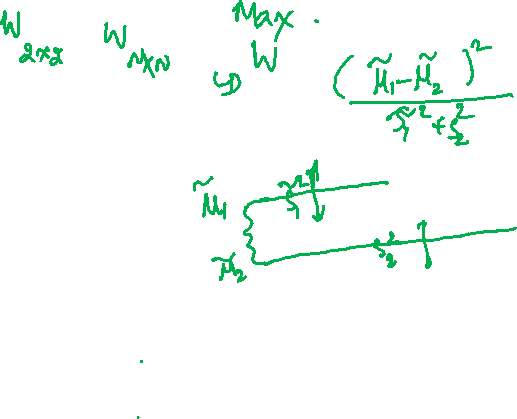 W 2x2 W nxn Max W
(μ̃₁ - μ̃₂)²
s̃₁² + s̃₂²
μ̃₁ s̃₁²
μ̃₂ s₂²